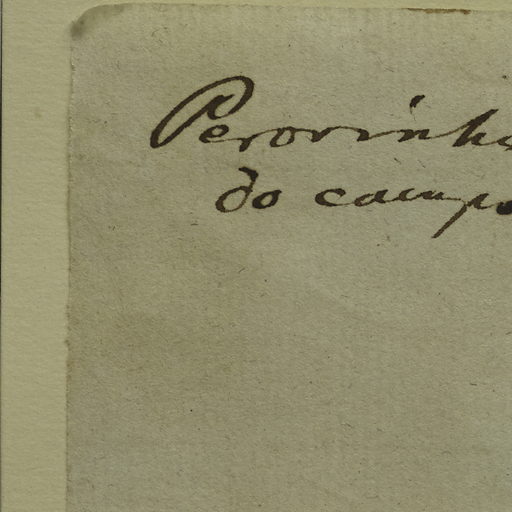 Perorinho
do campo